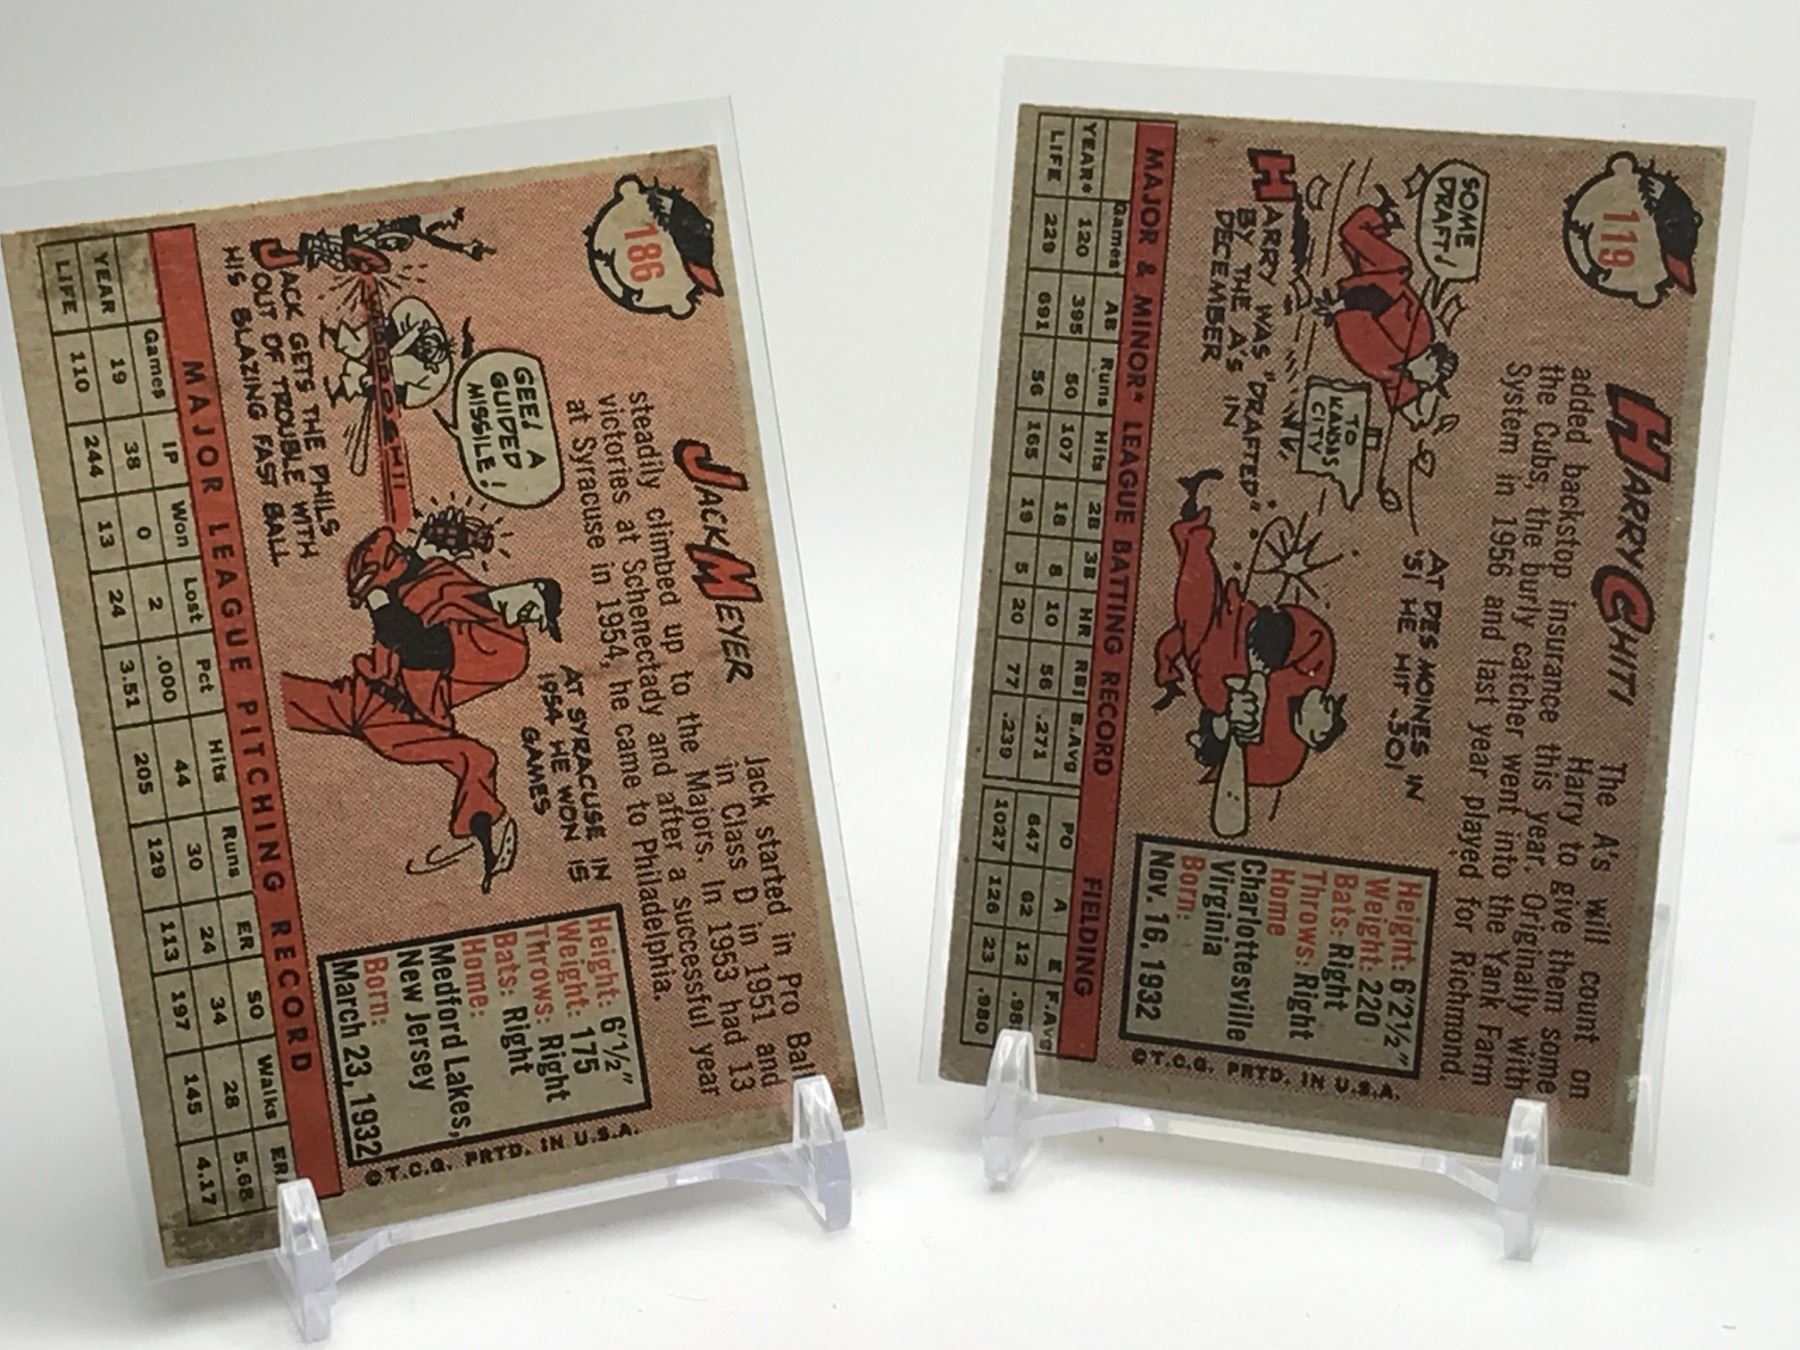 186
JACK MEYER
Jack started in Pro Ball
in Class D in 1951 and
steadily climbed up to the Majors. In 1953 had 13
victories at Schenectady and after a successful year
at Syracuse in 1954, he came to Philadelphia.
GEE! A
GUIDED
MISSILE!
JACK GETS THE PHILS
OUT OF TROUBLE WITH
HIS BLAZING FAST BALL
AT SYRACUSE IN
1954 HE WON 15
GAMES
Height: 6'1½"
Weight: 175
Throws: Right
Bats: Right
Home:
Medford Lakes,
New Jersey
Born:
March 23, 1932
©T.C.G. PRTD. IN U.S.A.
MAJOR LEAGUE PITCHING RECORD
Games IP Won Lost Pct Hits Runs ER SO Walks
YEAR 19 38 0 2 .000 44 30 24 34 28 5.68
LIFE 110 244 13 24 3.51 205 129 113 197 145 4.17
119
HARRY CHITI
The A's will count on
Harry to give them some
added backstop insurance this year. Originally with
the Cubs, the burly catcher went into the Yank Farm
System in 1956 and last year played for Richmond.
SOME
DRAFT!
TO
KANSAS
CITY
HARRY WAS "DRAFTED"
BY THE A'S IN
DECEMBER
AT DES MOINES IN
'51 HE HIT .301
Height: 6'2½"
Weight: 220
Bats: Right
Throws: Right
Home
Charlottesville
Virginia
Born:
Nov. 16, 1932
©T.C.G. PRTD. IN U.S.A.
MAJOR & MINOR* LEAGUE BATTING RECORD FIELDING
Games AB Runs Hits 2B 3B HR RBI B.Avg PO A E F.Avg
YEAR* 120 395 50 107 18 8 10 56 .271 647 62 12
LIFE 229 691 56 165 19 5 20 77 .239 1027 126 23 .980